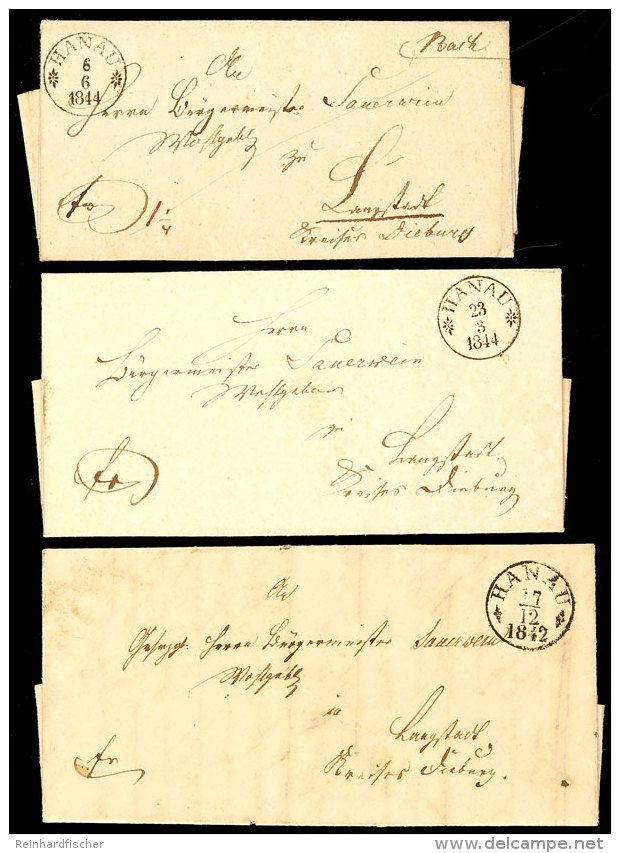 HANAU
6
6
1844
An
Herrn Bürgermeister Sauerwein
Wohlgeb
zu
fr
1 1/4
Langstadt
Kreises Dieburg
HANAU
23
3
1844
Herrn
Bürgermeister Sauerwein
Wohlgeboren
zu
fr
Langstadt
Kreises Dieburg
HANAU
17
12
1842
An
Herrn Bürgermeister Sauerwein
Wohlgeb
in
fr
Langstadt
Kreises Dieburg.
Reinhardfischer
delcampe.net